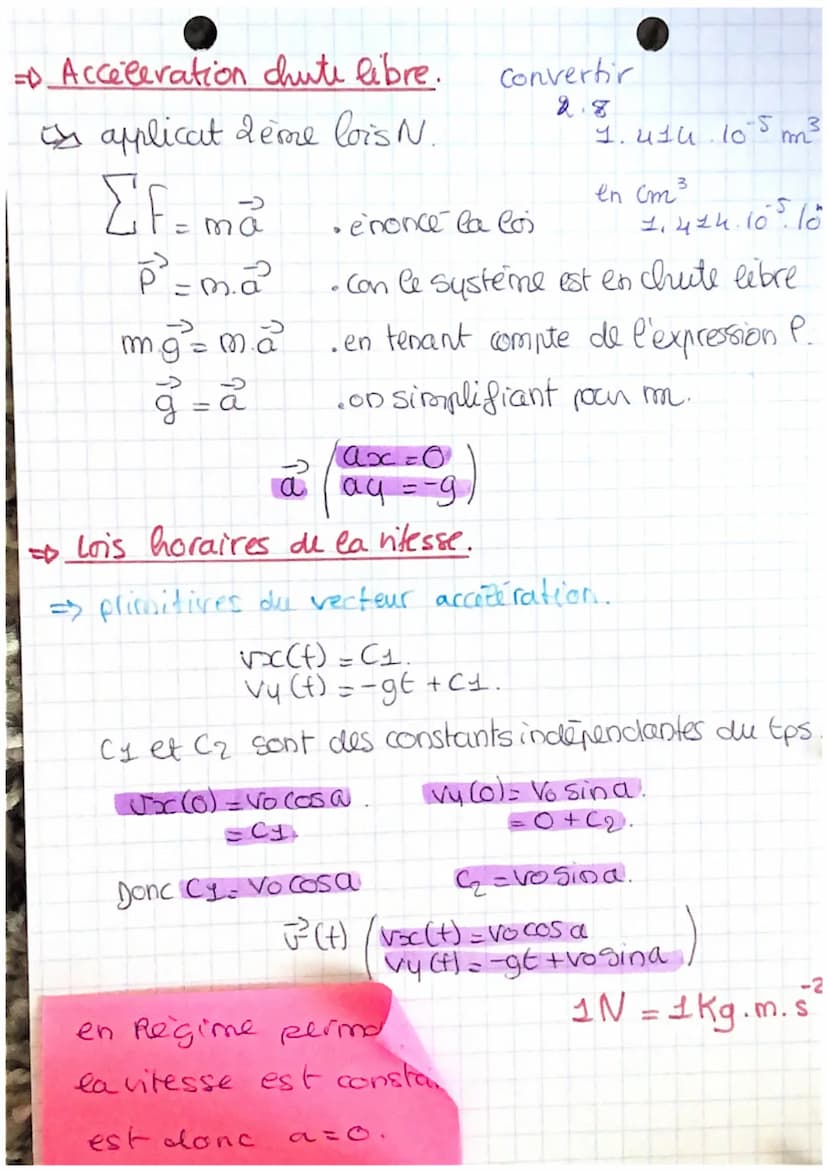 => Accéleration chute libre.
convertir
2.8
1.414.10^-5 m^3
↳ applicat 2ème lois N.
en cm^3
1,414.10^-5.10
ΣF = ma⃗ . énoncé la loi
P⃗ = m.a⃗ . car le système est en chute libre
m.g⃗ = m.a⃗ . en tenant compte de l'expression P.
g⃗ = a⃗ . on simplifiant par m.
a⃗ (ax = 0
ay = -g)
=> Lois horaires de la vitesse.
=> primitives du vecteur accélération.
vx(t) = C1.
vy(t) = -gt + C1.
C1 et C2 sont des constants indépendantes du tps.
vx(0) = v0 cos a. vy(0) = v0 sin a.
= C1. = 0 + C2.
Donc C1 = v0 cos a C2 = v0 sin a.
v⃗(t) (vx(t) = v0 cos a
vy(t) = -gt + v0 sin a)
1N = 1Kg.m.s^-2
en Régime perma
la vitesse est consta
est donc a = 0.